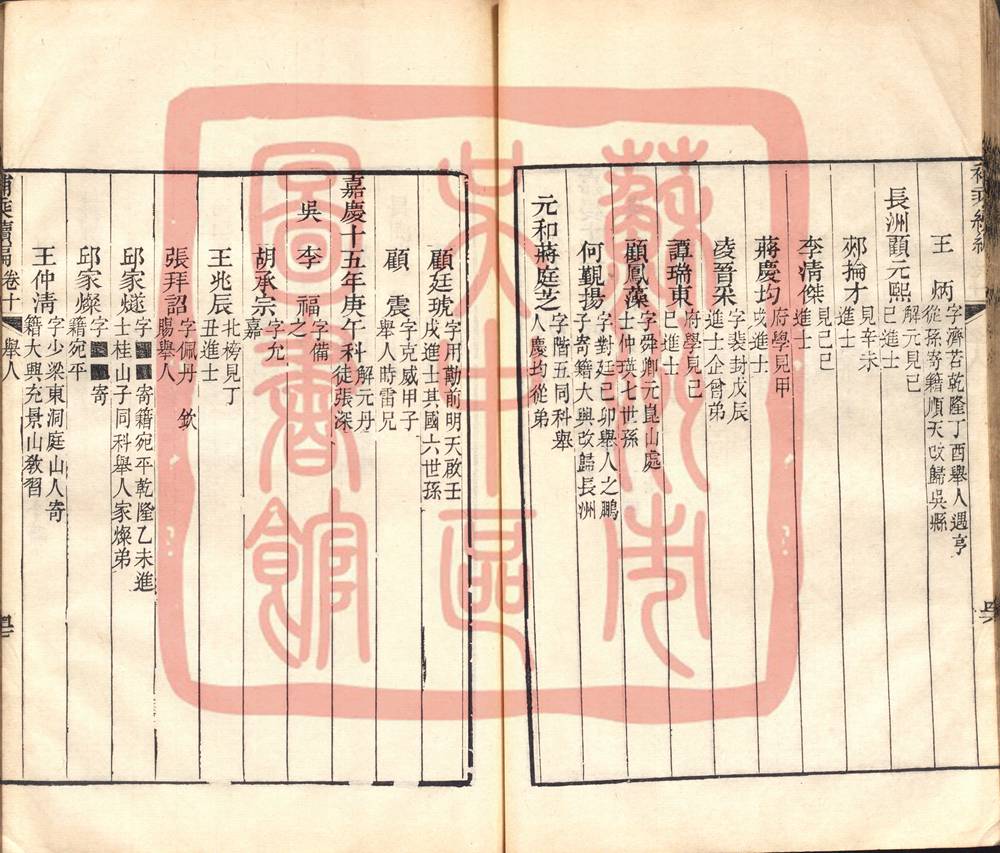 王　炳 字濟若乾隆丁酉舉人遇亨
從孫寄籍順天改歸吳縣
長洲顧元熙 解元見己
巳進士
鄭掄才 見辛未
進士
李清傑 見己巳
進士
蔣慶均 府學見甲
戌進士
凌晉采 字裴封戊辰
進士企曾弟
譚瑞東 府學見己
巳進士
顧鳳藻 字舜卿元崑山處
士仲瑛七世孫
何覲揚 字對廷己卯舉人之鵬
子寄籍大興改歸長洲
元和蔣庭芝 字階五同科舉
人慶均從弟
顧廷琥 字用勤前明天啟壬
戌進士其國六世孫
顧　震 字克威甲子
舉人時雷兄
嘉慶十五年庚午科 解元丹
徒張深
吳　李　福 字備
之
胡承宗 字允
嘉
王兆辰 北榜見丁
丑進士
張拜詔 字佩丹　欽
賜舉人
邱家燧 字■■寄籍宛平乾隆乙未進
士桂山子同科舉人家燦弟
邱家燦 字■■寄
籍宛平
王仲清 字少梁東洞庭山人寄
籍大興充景山教習
甫乘續編 卷十 舉人
蘇州市
吳中區
圖書館